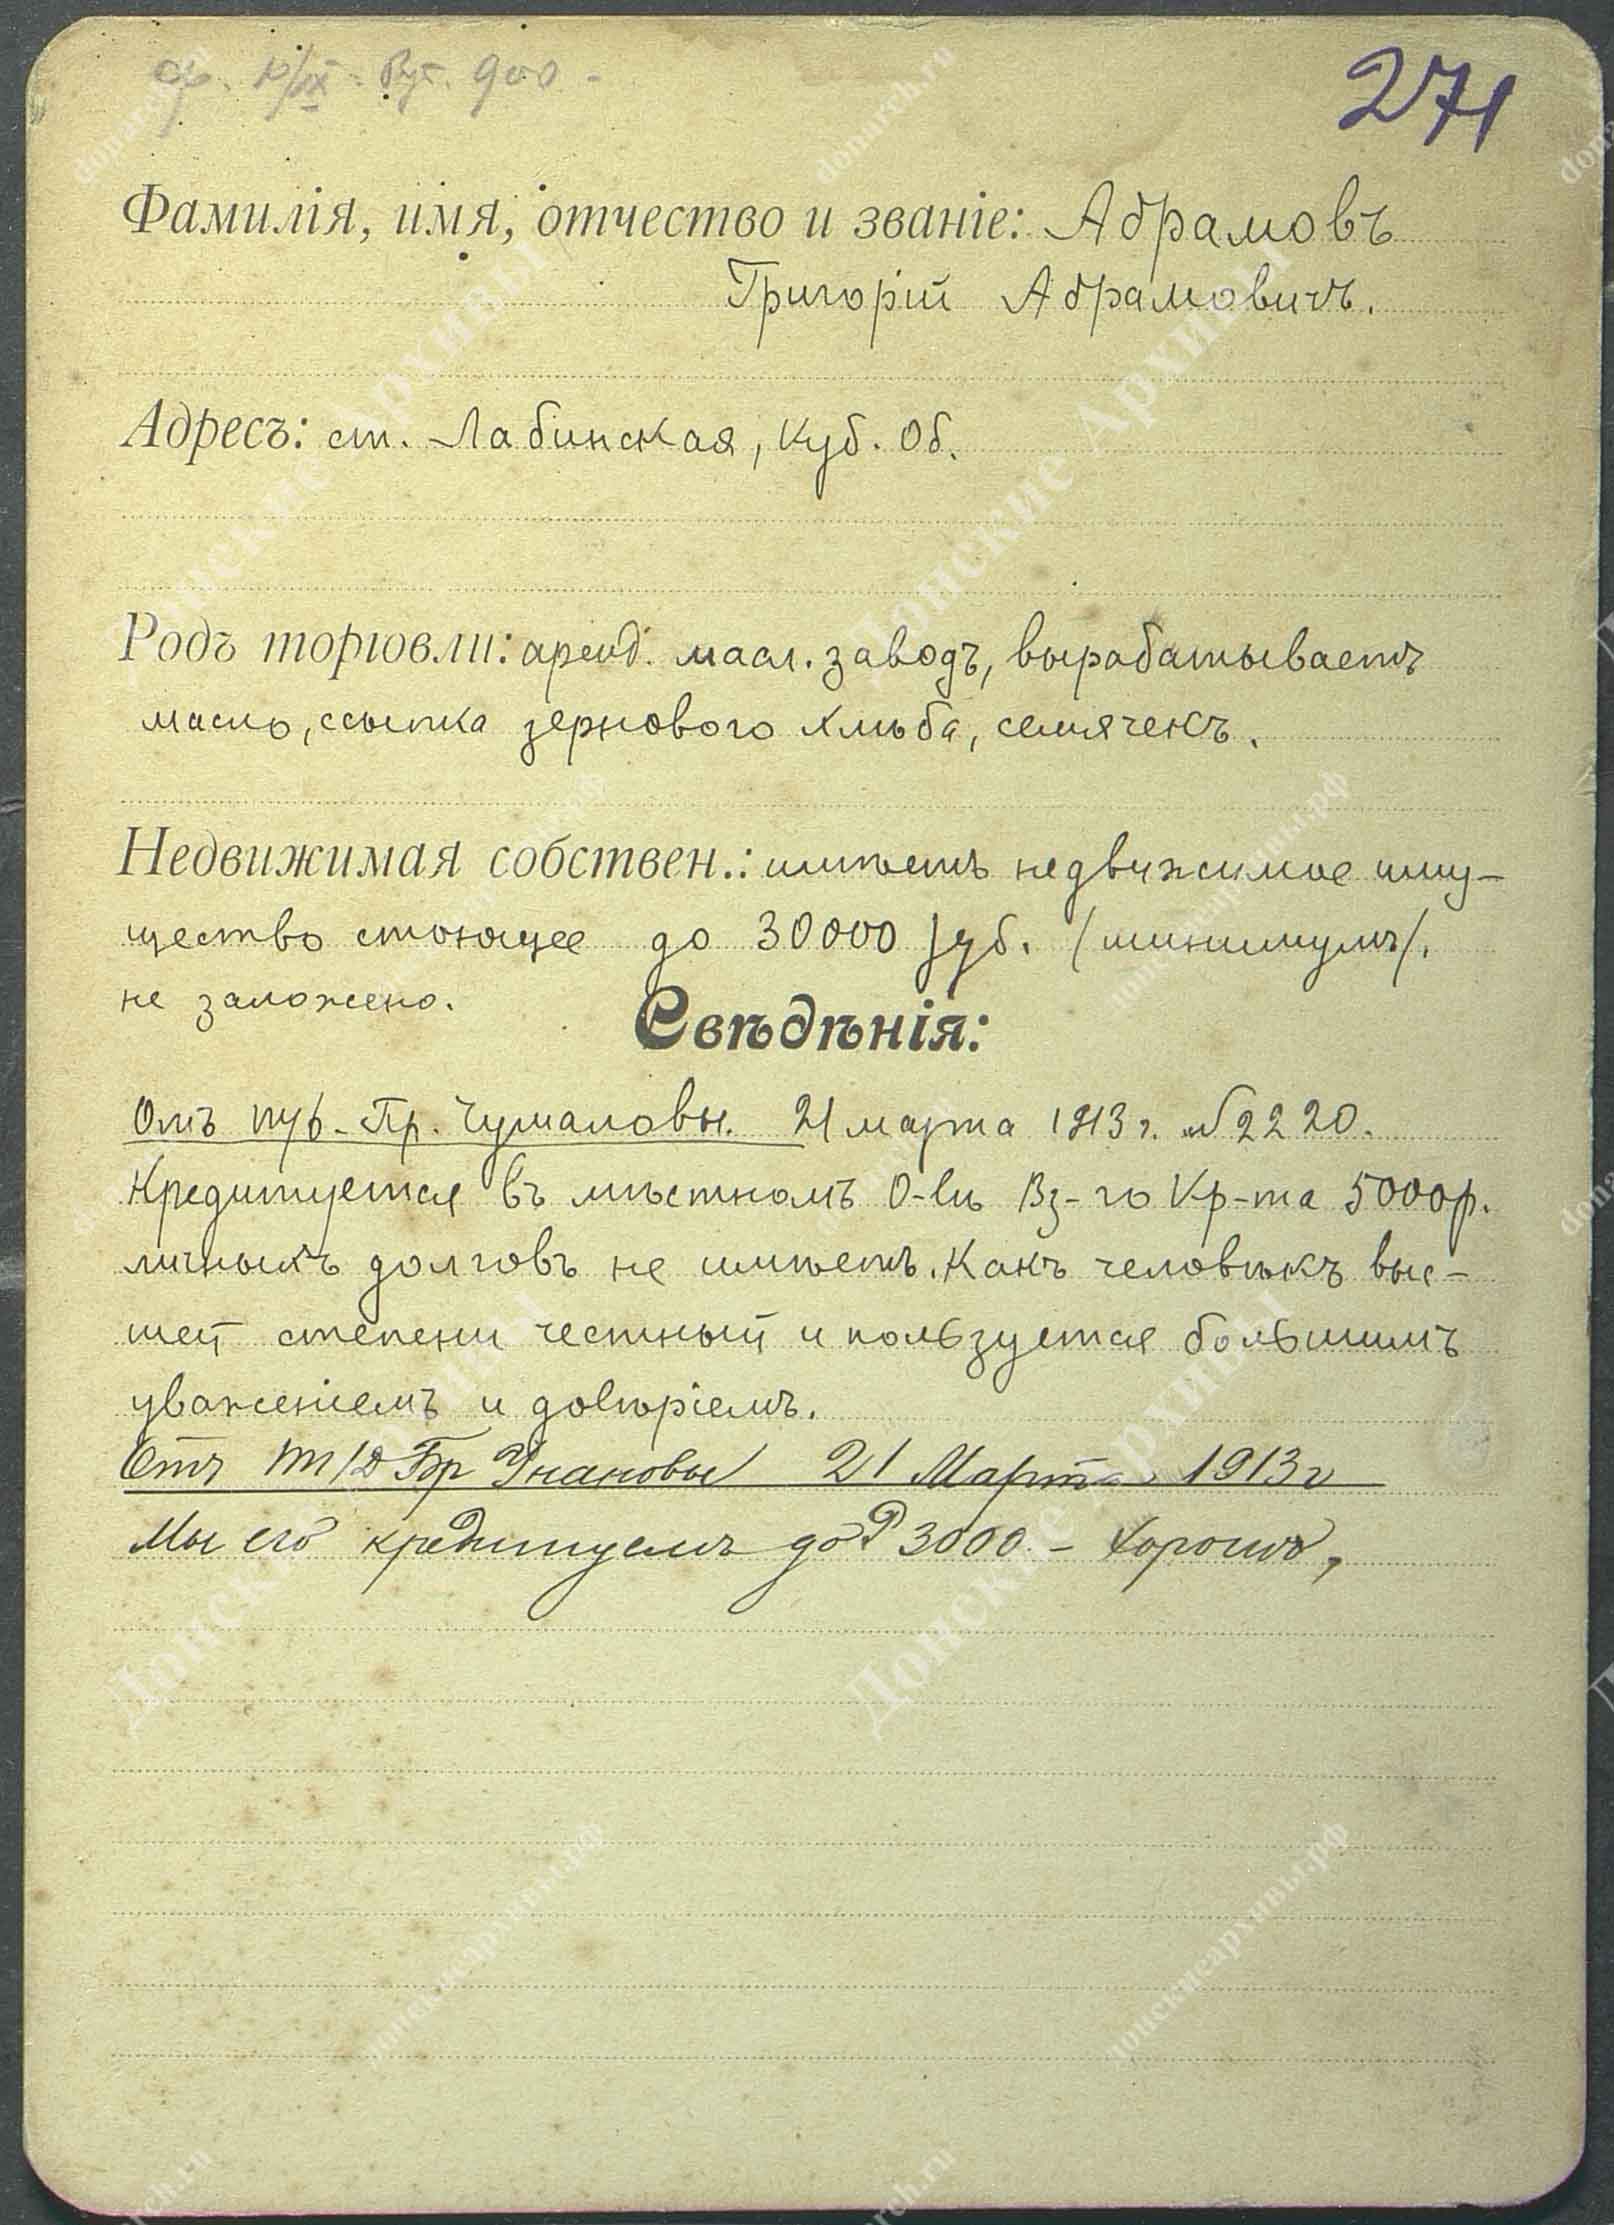 271
Фамилія, имя, отчество и званіе: Абрамовъ
Григорій Абрамовичъ.
Адресъ: ст. Лабинская, Куб. Об.
Родъ торговли: аренд. масл. заводъ, вырабатываетъ
масло, ссыпка зернового хлѣба, семячекъ.
Недвижимая собствен.: имѣетъ недвижимое иму-
щество стоющее до 30000 руб. /минимумъ/.
не заложено.
Свѣдѣнія:
Отъ Пр. Чумаловы. 21 марта 1913 г. № 2220.
Кредитуется въ мѣстномъ О-вѣ Вз-го Кр-та 5000 р.
личныхъ долговъ не имѣетъ. Какъ человѣкъ выс-
шей степени честный и пользуется большимъ
уваженіемъ и довѣріемъ.
Отъ Т/Д Бр 21 Марта 1913 г
Мы его кредитуемъ до Р 3000 - хорошъ,
Донские Архивы
donarch.ru
донскиеархивы.рф